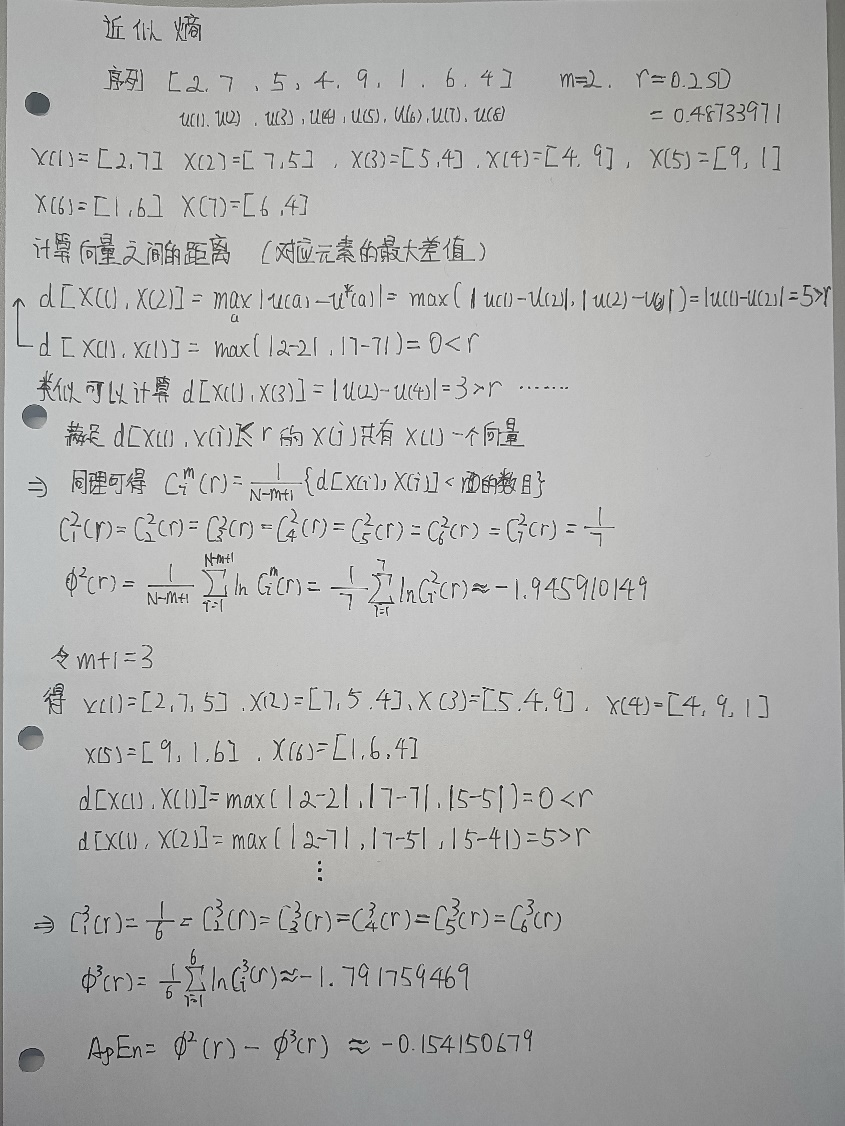 近似熵
序列 [2, 7, 5, 4, 9, 1, 6, 4] m=2. r=0.2SD
u(1), u(2), u(3), u(4), u(5), u(6), u(7), u(8) = 0.48733971
X(1)=[2,7] X(2)=[7,5], X(3)=[5,4], X(4)=[4,9], X(5)=[9,1]
X(6)=[1,6] X(7)=[6,4]
计算向量之间的距离 (对应元素的最大差值)
d[X(1), X(2)] = max_a |u(a)-u*(a)| = max(|u(1)-u(2)|, |u(2)-u(3)|) = |u(1)-u(2)| = 5>r
d[X(1), X(1)] = max(|2-2|, |7-7|) = 0<r
类似可以计算 d[X(1), X(3)] = |u(2)-u(4)| = 3>r ……
满足 d[X(1), X(j)]≤r 的 X(j)共有 X(1)一个向量
⇒ 同理可得 C_i^m(r) = 1/(N-m+1) {d[X(i), X(j)] < 的数目}
C_1^2(r) = C_2^2(r) = C_3^2(r) = C_4^2(r) = C_5^2(r) = C_6^2(r) = C_7^2(r) = 1/7
φ^2(r) = 1/(N-m+1) ∑_{i=1}^{N-m+1} ln C_i^m(r) = 1/7 ∑_{i=1}^{7} ln C_i^2(r) ≈ -1.945910149
令 m+1=3
得 X(1)=[2,7,5], X(2)=[7,5,4], X(3)=[5,4,9], X(4)=[4,9,1]
X(5)=[9,1,6], X(6)=[1,6,4]
d[X(1), X(1)] = max(|2-2|, |7-7|, |5-5|) = 0<r
d[X(1), X(2)] = max(|2-7|, |7-5|, |5-4|) = 5>r
⋮
⇒ C_1^3(r) = 1/6 = C_2^3(r) = C_3^3(r) = C_4^3(r) = C_5^3(r) = C_6^3(r)
φ^3(r) = 1/6 ∑_{i=1}^{6} ln C_i^3(r) ≈ -1.791759469
ApEn = φ^2(r) - φ^3(r) ≈ -0.154150679